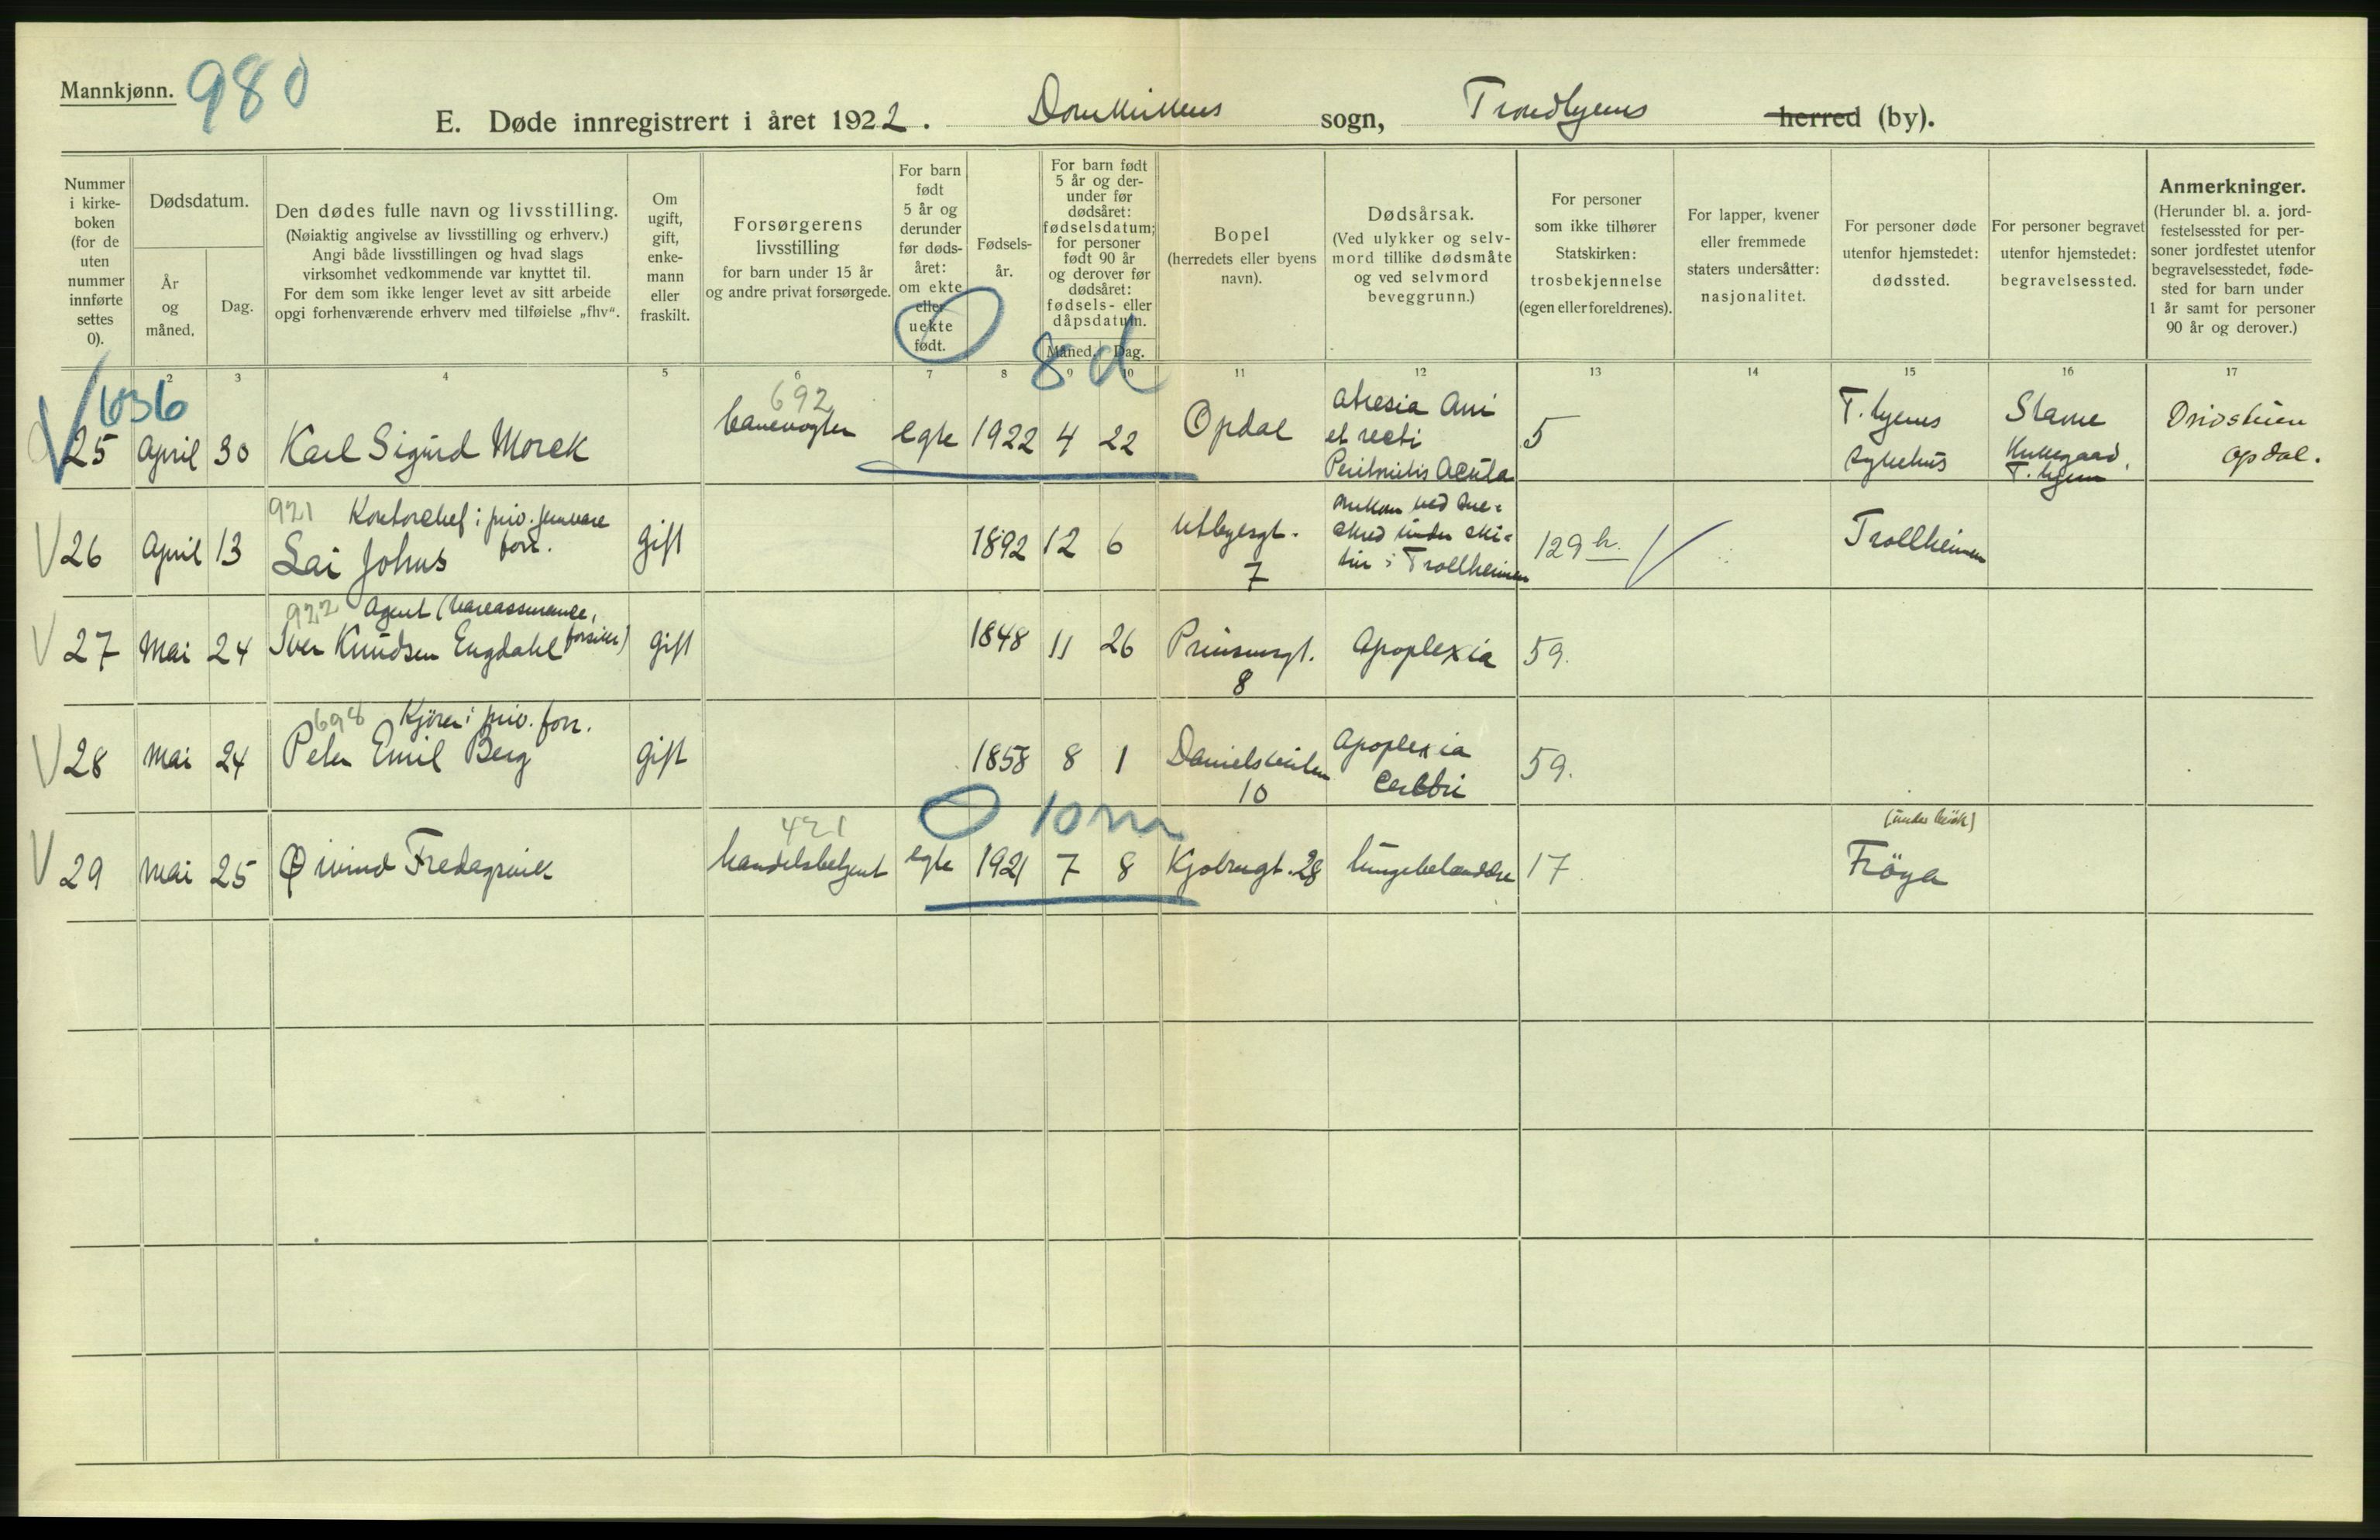 Mannkjønn. 980
E. Døde innregistrert i året 1922. Domkirkens sogn, Trondhjems herred (by).
Nummer i kirke- boken (for de uten nummer innførte settes 0).
Dødsdatum.
År og måned.
Dag.
Den dødes fulle navn og livsstilling.
(Nøiaktig angivelse av livsstilling og erhverv.)
Angi både livsstillingen og hvad slags
virksomhet vedkommende var knyttet til.
For dem som ikke lenger levet av sitt arbeide
opgi forhenværende erhverv med tilføielse „fhv“.
Om ugift, gift, enke- mann eller fraskilt.
Forsørgerens livsstilling
for barn under 15 år
og andre privat forsørgede.
For barn født 5 år og derunder før døds- året: om ekte eller uekte født.
Fødsels- år.
For barn født 5 år og der- under før dødsåret: fødselsdatum; for personer født 90 år og derover før dødsåret: fødsels- eller dåpsdatum.
Måned. Dag.
Bopel
(herredets eller byens navn).
Dødsårsak.
(Ved ulykker og selv- mord tillike dødsmåte og ved selvmord beveggrunn.)
For personer som ikke tilhører Statskirken: trosbekjennelse (egen eller foreldrenes).
For lapper, kvener eller fremmede staters undersåtter: nasjonalitet.
For personer døde utenfor hjemstedet: dødssted.
For personer begravet utenfor hjemstedet: begravelsessted.
Anmerkninger.
(Herunder bl. a. jord- festelsessted for per- soner jordfestet utenfor begravelsesstedet, føde- sted for barn under 1 år samt for personer 90 år og derover.)
8 d
2 3 4 5 6 7 8 9 10 11 12 13 14 15 16 17
636
692
25 April 30 Karl Sigurd Morek banevogter egte 1922 4 22 Opdal atresia Ani et recti Peritonitis Acuta 5 T.hjems sykehus Stavne Kirkegaard, T.hjem Drivstuen Opdal.
921 Kontorchef i priv. forr.
26 April 13 Lai Johns gift 1892 12 6 7 ved under ski- tur i Trollheimen 129 h. Trollheimen
922 Agent (vareassurance, forsikr)
27 Mai 24 Iver Knudsen Engdahl gift 1848 11 26 Prinsensgt. 8 Apoplexia 59.
698 Kjører i priv. forr.
28 Mai 24 Peter Emil Berg gift 1858 8 1 Danielsveiten 10 Apoplexia cerebri 59.
10 m
421
(under besøk)
29 Mai 25 Øivind Fredagsvik handelsbetjent egte 1921 7 8 Kjobmgt. 28 lungebetændelse 17 Frøya